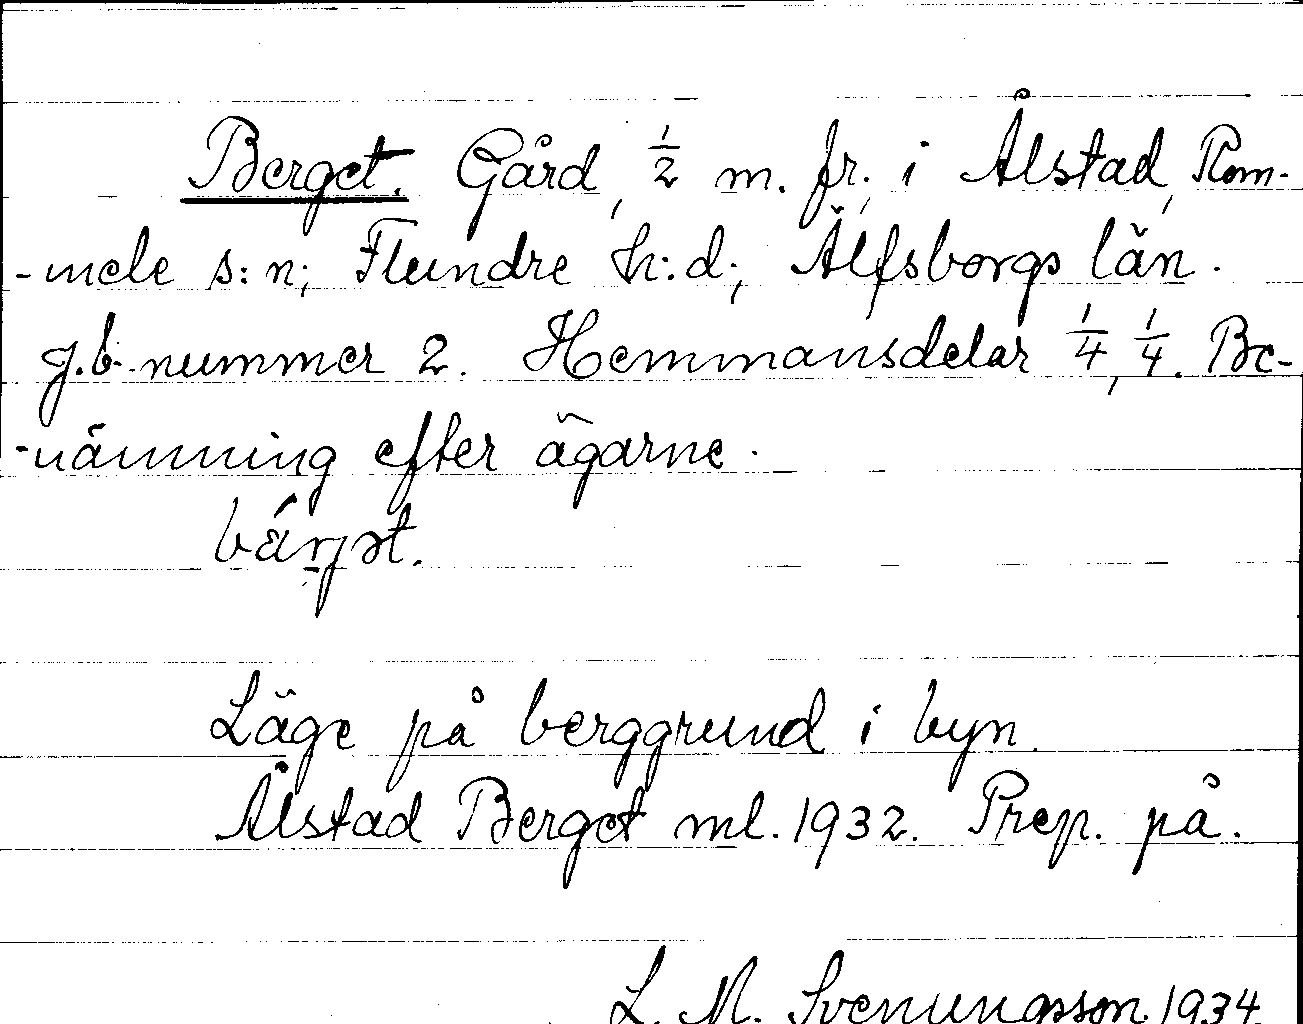 Berget. Gård, 1/2 m. fr. i Ålstad, Rom-
-mele s:n; Flundre h:d; Älfsborgs län.
j.b. nummer 2. Hemmansdelar 1/4, 1/4. Be-
-nämning efter ägarne.
Läge på berggrund i byn.
Ålstad Berget ml. 1932. Prep. på.
L. M. Svenungsson 1934